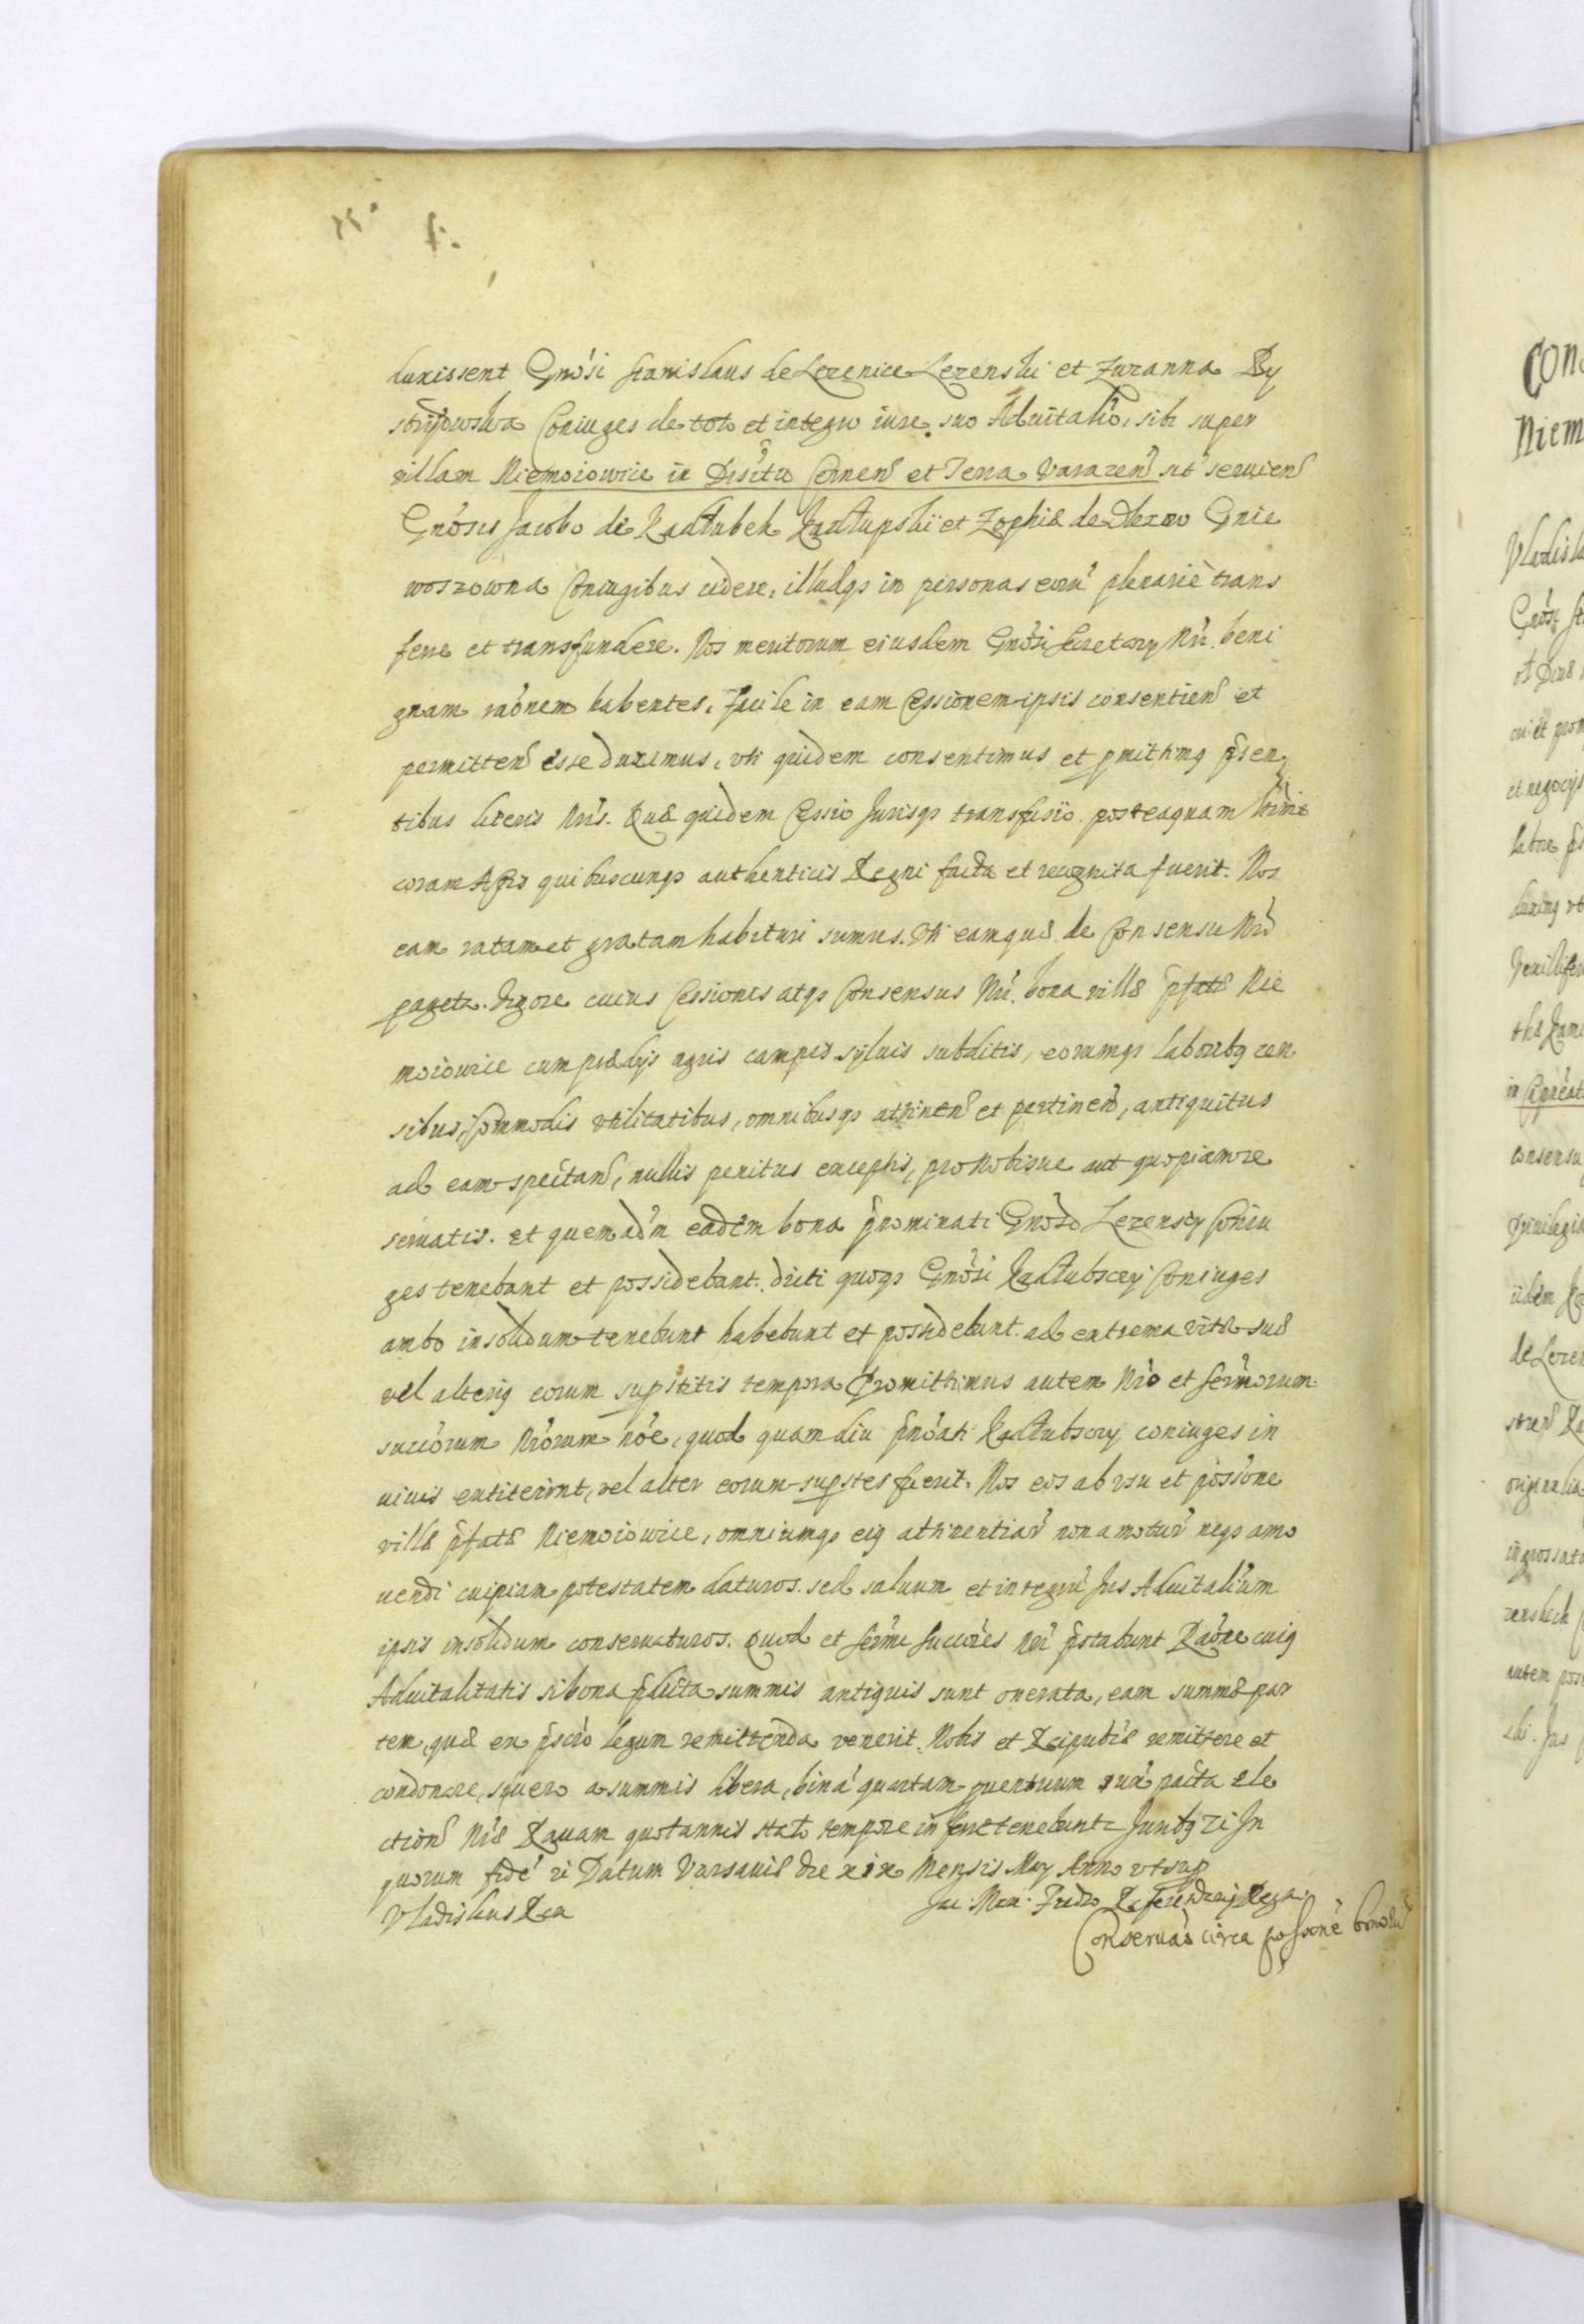 duxissent Gnosi Stanislaus de Lezenice Lezenski et Zuzanna By
strzykowska Coniuges de toto et integro iure suo Aduitalio, sibi super
villam Niemoiowice in Disictu Cernen et Terra Varazen sit seruien
Gnosis Jacobo de Kadlubek Kadlupskÿ et Zophiæ de Olexow Gnie
woszowna Coniugibus cedere, illudqz in personas eoru plenariè trans
ferre et transfundere. Nos meritorum eiusdem Gnosi Secretarij Nri. beni
gnam raonem habentes. Facile in eam Cessionem ipsis consentien et
permitten esse duximus, vti quidem consentimus et pmittimq psen
tibus literis Nris. Quæ quidem Cessio Jurisqz transfusio posteaquam
coram Actis quibuscunqz authenticis Regni facta et recognita fuerit. Nos
eam ratam et gratam habituri sumus. Vti eamquæ de Consensu Nro
pagetz. Vigore cuius Cessionis atqz Consensus Nri. bona villæ pfatæ Nie
moiowice cum prædijs agris campis syluis subditis, eorumqz laboribq cen
sibus, Commodis vtilitatibus, omnibusqz attinen et pertinen, antiquitus
ad eam spectan, nullis penitus exceptis, pro Nobisue aut quopiam re
seruatis. et quemadm eadem bona pnominati Gnosi Lezenscy Coniu
ges tenebant et possidebant. dicti quoqz Gnosi Kadlubscey Coniuges
ambo insolidum tenebunt habebunt et possidebunt ad extrema vitæ suæ
vel alteriq eorum supstitis tempora Promittimus autem Nro et Sermorum
succorum Nrorum noe, quod quamdiu pnoati Kadlubscy coniuges in
uiuis extiterint, vel alter eorum supstes fuerit. Nos eos ab vsu et possione
villæ pfatæ Niemoiowice, omniumqz eiq attinentiar non amotur neqz amo
uendi cuipiam potestatem daturos. sed saluum et integru Jus Aduitalium
ipsis insolidum conseruaturos. Quod et Sermi Succores Nri pstabunt Raone cuiq
Aduitalitatis si bona pdicta summis antiquis sunt onerata, eam summæ par
tem, quæ ex pscro legum remittenda venerit Nobis et Reipubcæ remittere et
condonare, si vero a summis libera, bina quartam puentuum iux pacta ele
ction Nræ Rauam quotannis stato tempore inferre tenebuntz Juribq zi In
quorum fide zi Datum Varsauiæ die xix Mensis May Anno vtsup
Vladislaus Rex
Jac. Max. Fredro Referendarj Regn.
Conseruao circa possione bonoru